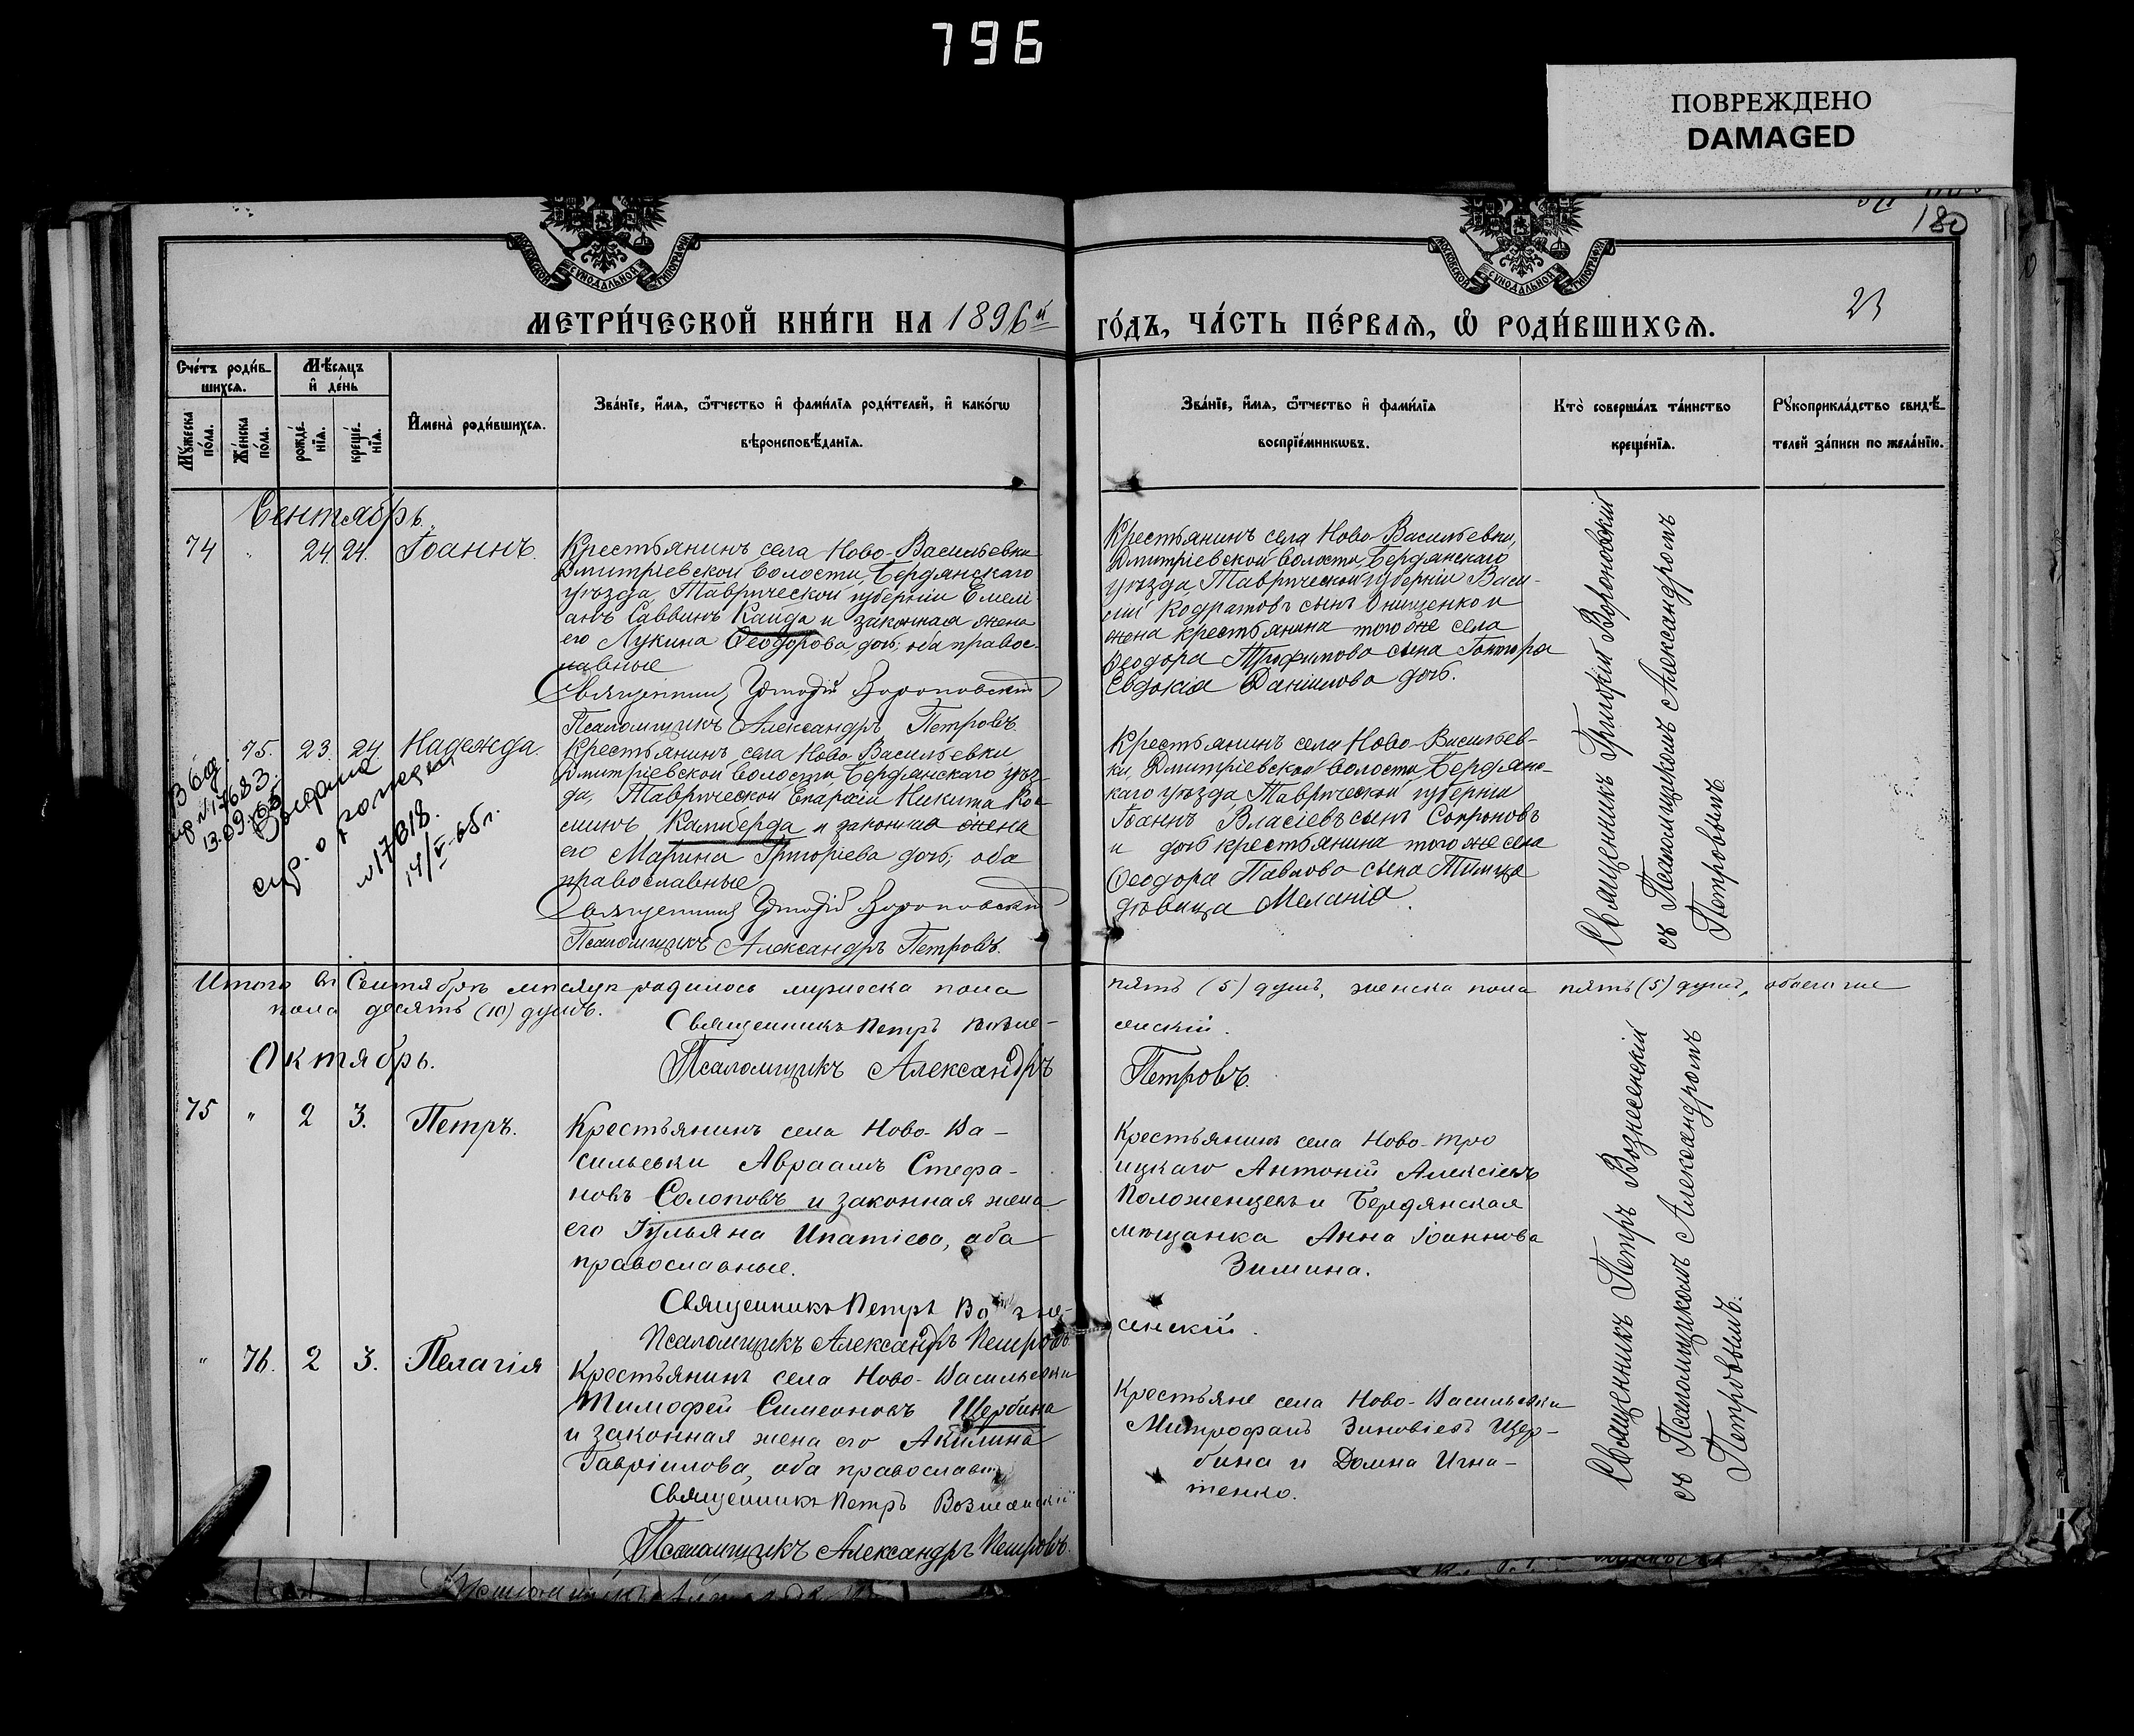 796
ПОВРЕЖДЕНО
DAMAGED
180
МОСКОВСКОЙ СѴНОДАЛЬНОЙ ТИПОГРАФІИ
МОСКОВСКОЙ СѴНОДАЛЬНОЙ ТИПОГРАФІИ
МЕТРИ́ЧЕСКОЙ КНИ́ГИ НА 1896 й
ГО́ДЪ, ЧА́СТЬ ПЕ́РВАЯ, Ѡ РОДИ́ВШИХСЯ.
23
Сче́тъ роди́в-
шихся.
Мѣ́сяцъ
и де́нь
Мꙋ́жеска по́ла.
Же́нска по́ла.
рожде́-нїя.
креще́-нїя.
Имена̀ роди́вшихся.
Зва́нїе, и́мя, ѻ́тчество и фами́лїя роди́телей, и како́гѡ
вѣроисповѣ́данїя.
Зва́нїе, и́мя, ѻ́тчество и фами́лїя
воспрїе́мникѡвъ.
Кто̀ соверша́лъ та́инство
креще́нїя.
Рꙋкоприкла́дство свидѣ́-
телей за́писи по жела́нїю.
Сентябрь.
74 " 24. 24. Іоаннъ.
Крестьянинъ села Ново-Васильевки
Дмитріевской волости, Бердянскаго
уѣзда, Таврической губерніи Емелі
анъ Саввинъ Кайда и законная жена
его Лукина Ѳеодорова дочь; оба правос-
лавные
Священникъ Вороновскій
Псаломщикъ Александръ Петровъ.
Крестьянинъ села Ново-Васильевки,
Дмитріевской волости, Бердянскаго
уѣзда, Таврической губерніи Васи-
лій Кодратовъ сынъ Онищенко и
жена крестьянина того же села
Ѳеодора Трофимова сына
Евдокія Даніилова дочь.
Священникъ Григорій Вороновскій
съ Псаломщикомъ Александромъ
Петровымъ.
75. 23. 24 Надежда.
№ 17683.
Выдана
о рожден
№ 17818.
14/V-65 г.
Крестьянинъ села Ново-Васильевки
Дмитріевской волости, Бердянскаго уѣз-
да, Таврической Епархіи Никита Кос-
минъ Камберда и законная жена
его Марина Григоріева дочь; оба
православные
Священникъ Вороновскій
Псаломщикъ Александръ Петровъ.
Крестьянинъ села Ново-Васильев-
ки, Дмитріевской волости, Бердянс-
каго уѣзда Таврической губерніи
Іоаннъ Власіевъ сынъ Сопроновъ
и дочь крестьянина того же села
Ѳеодора Павлова сына
дѣвица Меланія.
Итого въ Сентябрѣ мѣсяцѣ родилось мужеска пола
пять (5) душъ, женска пола пять (5) душъ, обоего же
пола десять (10) душъ.
Священникъ Петръ Возне-
сенскій.
Псаломщикъ Александръ
Петровъ.
Октябрь.
75 " 2 3. Петръ.
Крестьянинъ села Ново-Ва-
сильевки Авраамъ Стефа-
новъ Солоповъ и законная жена
его Іульяна Ипатіева, оба
православные.
Священникъ Петръ Возне-
сенскій.
Псаломщикъ Александръ Петровъ.
Крестьянинъ села Ново-Тро
ицкаго Антоній Алексіевъ
Положенцевъ и Бердянская
мѣщанка Анна Іоаннова
Зимина.
Священникъ Петръ Вознесенскій
съ Псаломщикомъ Александромъ
Петровымъ.
" 76. 2 3. Пелагія
Крестьянинъ села Ново-Васильевки
Тимофей Симеоновъ Щербина
и законная жена его Акилина
Гавріилова, оба православны
Священникъ Петръ Вознесенскій
Псаломщикъ Александръ Петровъ.
Крестьяне села Ново-Васильевки
Митрофанъ Зиновіевъ Щер-
бина и Домна Игна-
тенко.